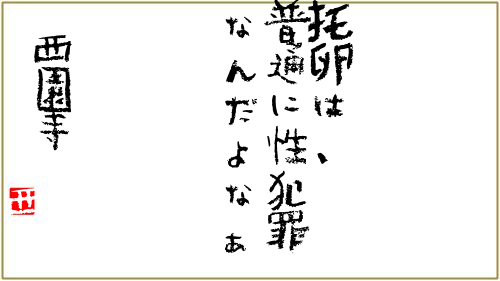 托卵は、
普通に性犯罪
なんだよなぁ
西園寺